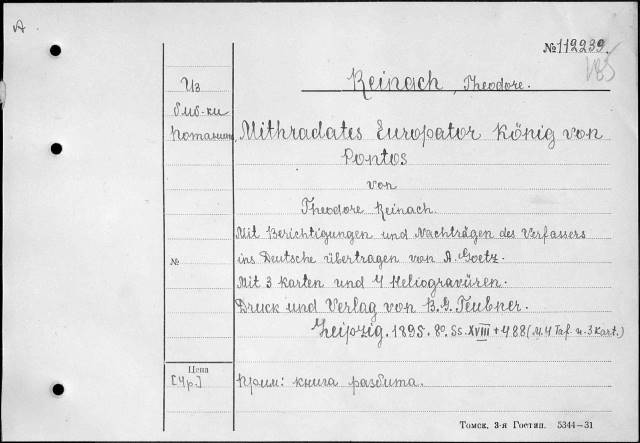 A
№ 112239.
Reinach, Theodore.
Из
биб-ки
Потанина
Mithradates Europator König von
Pontos
von
Theodore Reinach.
Mit Berichtigungen und Nachträgen des Verfassers
№
ins Deutsche übertragen von A. Goetz.
Mit 3 Karten und 4 Heliogravüren.
Druck und Verlag von B.G. Teubner.
Leipzig. 1895. 8o. Ss. XVIII + 488 (M. 4 Taf. u. 3 Kart.)
Цена
[4р.]
Прим: книга разбита.
Томск, 3-я Гостип. 5344—31